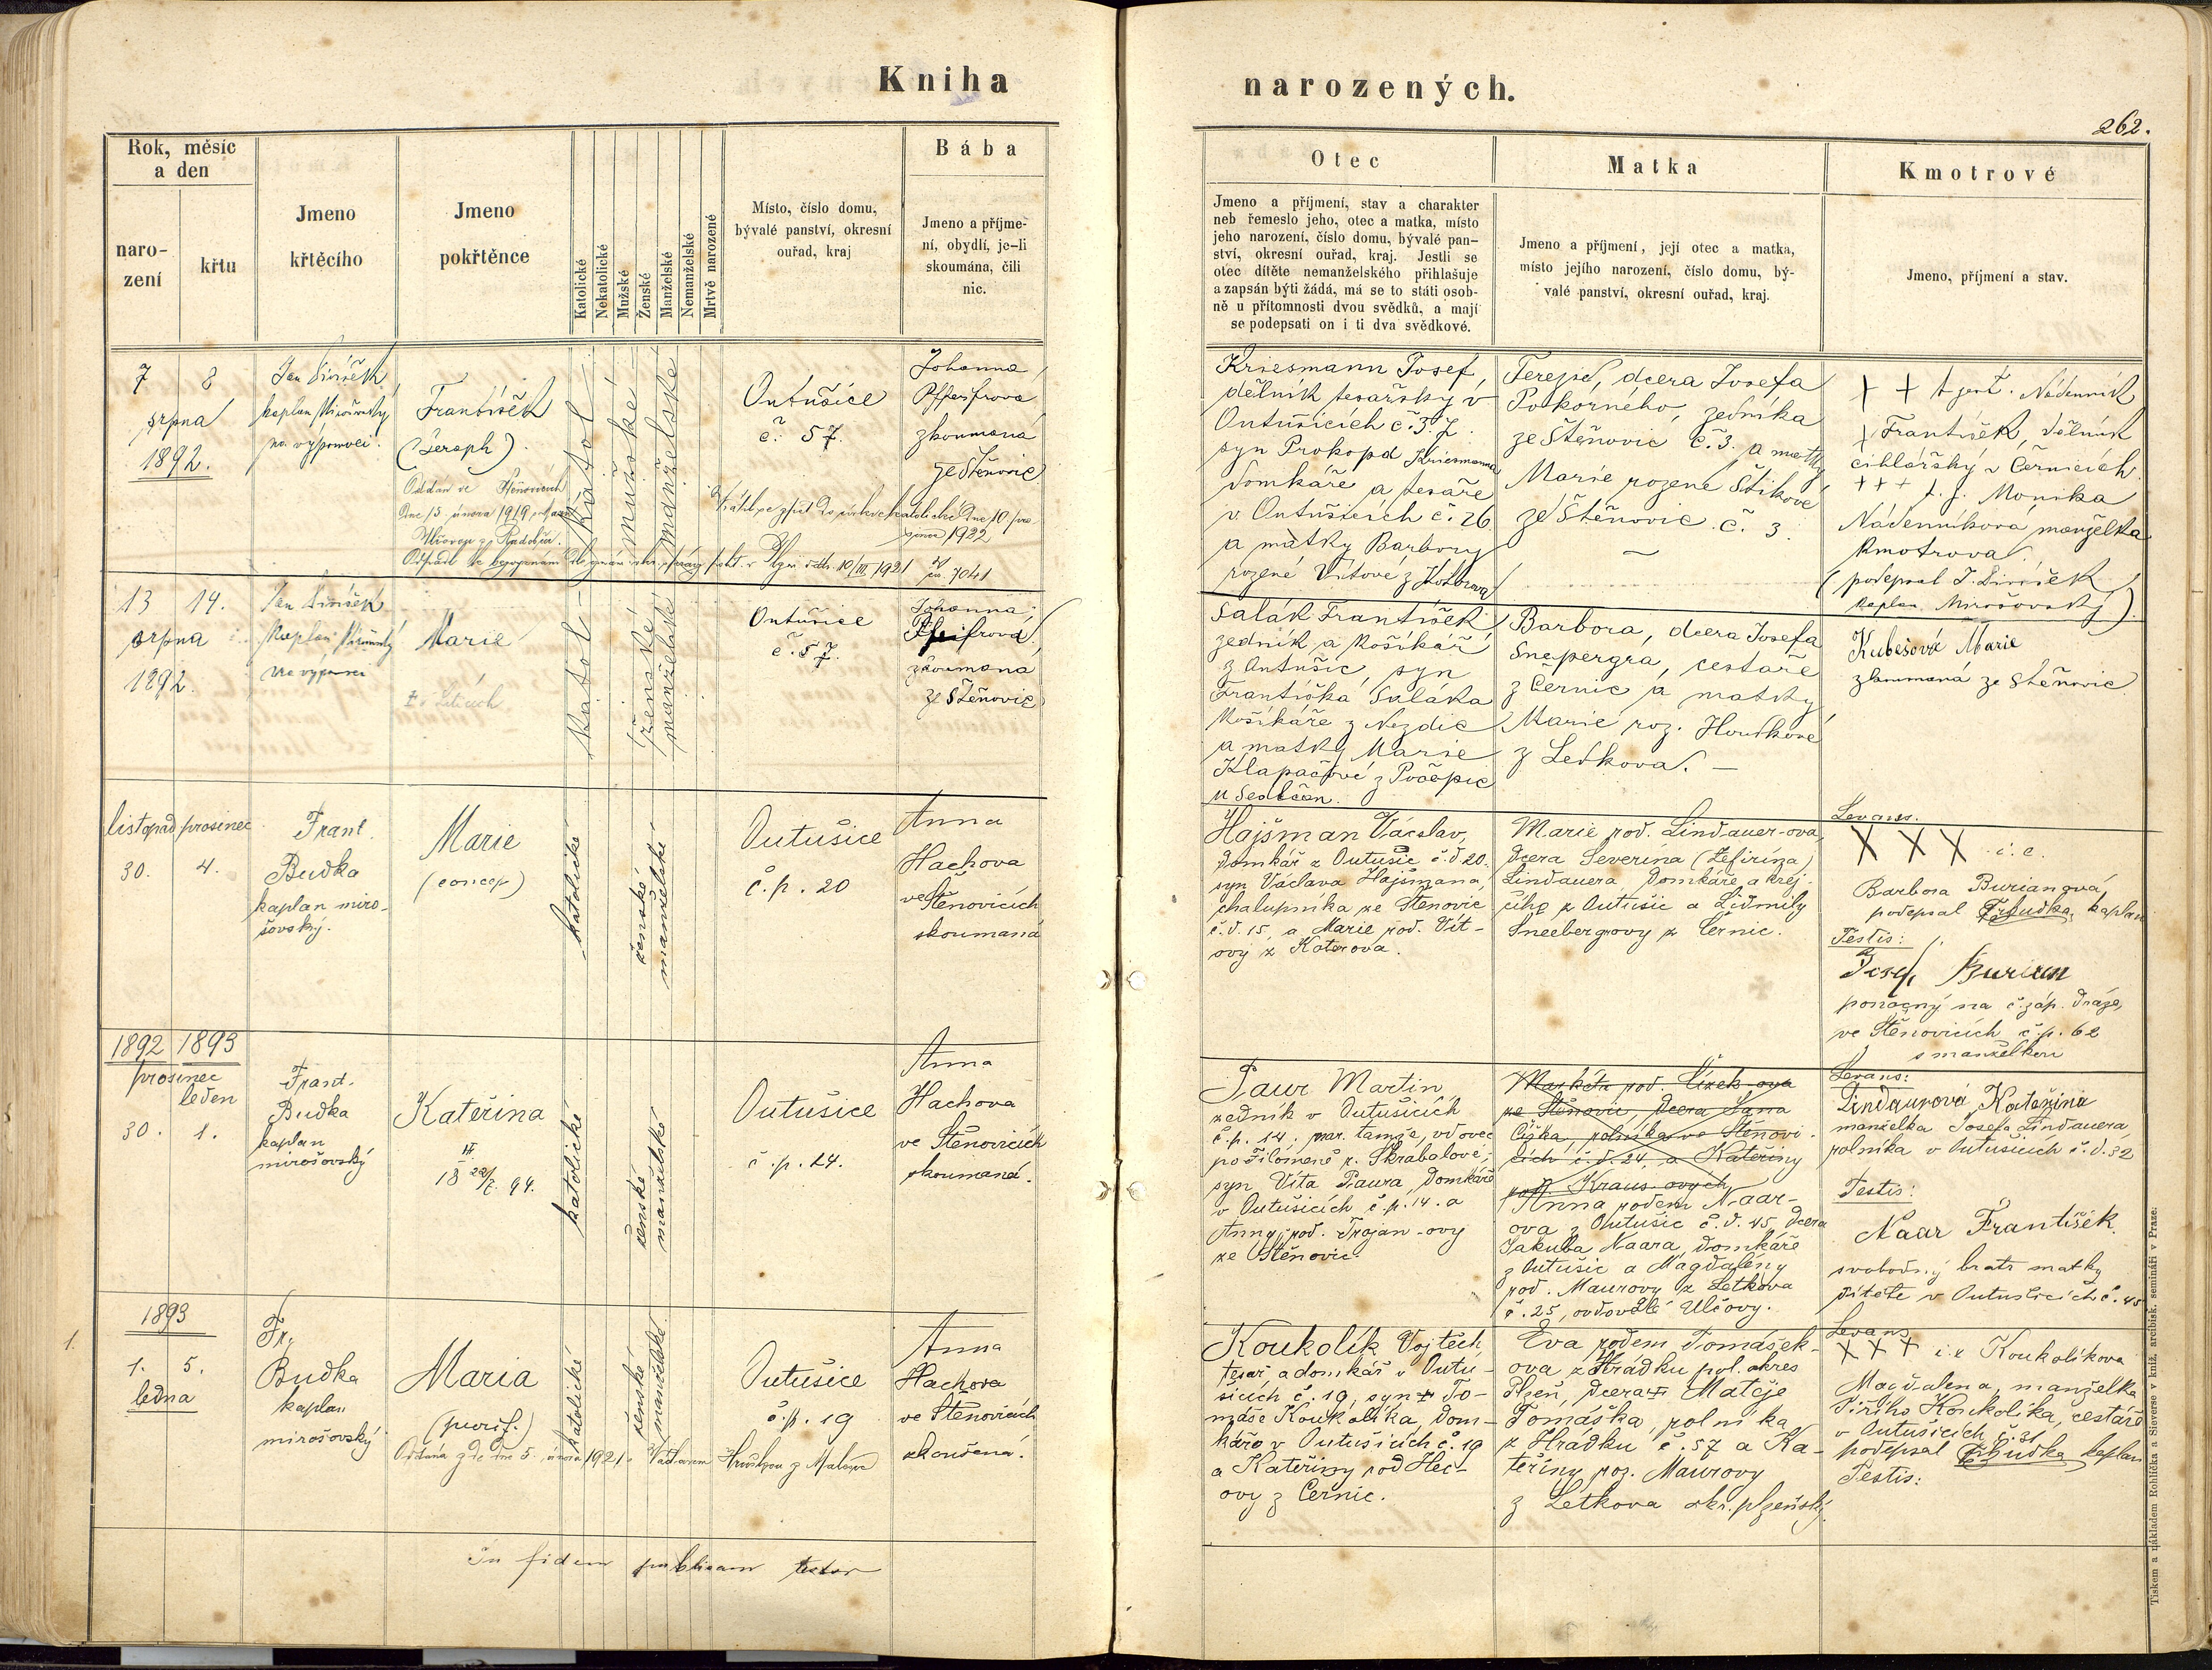 Kniha narozených.
262.
Rok, měsíc a den
naro-
zení
křtu
Jmeno
křtěcího
Jmeno
pokřtěnce
Katolické
Nekatolické
Mužské
Ženské
Manželské
Nemanželské
Mrtvě narozené
Místo, číslo domu,
bývalé panství, okresní
ouřad, kraj
Bába
Jmeno a příjme-
ní, obydlí, je-li
skoumána, čili
nic.
Otec
Jmeno a příjmení, stav a charakter
neb řemeslo jeho, otec a matka, místo
jeho narození, číslo domu, bývalé pan-
ství, okresní ouřad, kraj. Jestli se
otec dítěte nemanželského přihlašuje
a zapsán býti žádá, má se to státi osob-
ně u přítomnosti dvou svědků, a mají
se podepsati on i ti dva svědkové.
Matka
Jmeno a příjmení, její otec a matka,
místo jejího narození, číslo domu, bý-
valé panství, okresní ouřad, kraj.
Kmotrové
Jmeno, příjmení a stav.
7 8
srpna
1892.
Jan
kaplan
na výpomoci.
František
(Seraph).
Oddán ve Štěnovicích
Dne 15 února 1919
katol
mužské
manželské
Outušice
č. 57.
Johanna
zkoumaná
ze Štěnovic
Kriesmann Josef
dělník tesařský v
Outušicích č. 37.
syn Prokopa Kriesmanna
domkáře a tesaře
v Outušicích č. 26
a matky Barbory
rozené Vítové z
dcera Josefa
Pokorného, zedníka
ze Štěnovic č. 3. a matky
Marie rozené Štikové
ze Štěnovic č. 3.
+ + + Nádenník
František, dělník
cihlářský v Černicích
+++ t. j. Monika
Nádenníková manželka
kmotrova
(podepsal J.
kaplan Mirošovský).
13 14.
srpna
1892.
Jan
kaplan
Marie
katol
ženské
manželské
Outušice
č. 57.
Johanna
zkoumaná
ze Štěnovic
Salák František
zedník a košíkář
z Outušic, syn
Františka Saláka
košíkáře z Nezdic
a matky Marie
Klapačové z
u
Barbora, dcera Josefa
Snepergra, cestáře
z Černic a matky
Marie roz. Houdkové
z Letkova. —
Kubešová Marie
ze Štěnovic
listopad prosinec
30. 4.
Frant.
Budka
kaplan miro-
šovský.
Marie
(concep)
katolické
ženské
manželské
Outušice
č. p. 20
Anna
Hachova
ve Štěnovicích
skoumaná
Hajšman Václav,
domkář z Outušic č. d. 20.
syn Václava Hajšmana,
chalupníka ze Štěnovic
č. d. 15, a Marie rod. Vít-
ovy z Koterova.
Marie rod. Lindauer-ova,
dcera Severina (Zefirina)
Lindauera, domkáře a krej-
čího z Outušic a Lidmily
Sneebergrovy z Černic.
Levans.
X X X i. e.
Barbora Burianová,
podepsal Fr. Budka, kaplan
Testis:
Josef Burian
ponocný na č. záp. dráze,
ve Štěnovicích č. p. 62
s manželkou
1892 1893
prosinec
leden
30. 1.
Frant.
Budka
kaplan
mirošovský
Kateřina
katolické
ženské
manželské
Outušice
č. p. 14.
Anna
Hachova
ve Štěnovicích
skoumaná.
Paur Martin,
zedník v Outušicích
č. p. 14. nar. tamže, vdovec
po Filoméně r. Škrabalové,
syn Víta Paura, domkáře
v Outušicích č. p. 14. a
Anny, rod. Trojan-ovy
ze Štěnovic
Markéta rod. Čížek-ova
ze Štěnovic, dcera Jana
Čížka, rolníka ve Štěnovi-
cích č. d. 24, a Kateřiny
rod. Kraus-ových
Anna rodem Naar-
ova z Outušic č. d. 45, dcera
Jakuba Naara, domkáře
z Outušic a Magdalény
rod. Maurovy z Letkova
č. 25, ovdovělé Ulčovy.
Levans:
Lindaurová Kateřina
manželka Josefa Lindauera
rolníka v Outušicích č. d. 32
Testis:
Naar František.
svobodný bratr matky
dítěte v Outušicích č. 45
1893
1.
1. 5.
ledna
Fr.
Budka
kaplan
mirošovský
Maria
(purif.)
Oddána dne 5. února 1921
katolické
ženské
manželské
Outušice
č. p. 19
Anna
Hachova
ve Štěnovicích
zkoušená.
Koukolík Vojtěch,
tesař a domkář v Outu-
šicích č. 19, syn † To-
máše Koukolíka, dom-
káře v Outušicích č. 19
a Kateřiny rod Hec-
ovy z Černic.
Eva rodem Tomášek-
ova z Hrádku pol. okres
Plzeň, dcera † Matěje
Tomáška, rolníka
z Hrádku č. 57 a Ka-
teřiny roz. Maurovy
z Letkova okr. plzeňský.
Levans
+++ i. e. Koukolíkova
Magdalena, manželka
Jiřího Koukolíka, cestáře
v Outušicích č. 31
podepsal Fr. Budka, kaplan
Testis:
In fidem publicam testor
Tiskem a nákladem Rohlíčka a Sieverse v kníž. arcibisk. semináři v Praze.